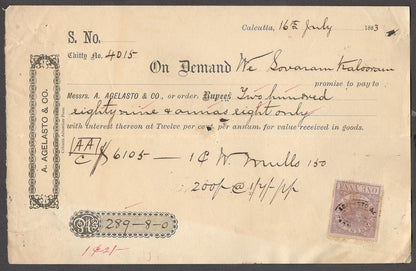 Calcutta, 16th July 1883
S. No.
Chitty No. 4015
On Demand We Sovaram Kalooram
promise to pay to
Messrs. A. AGELASTO & CO., or order, Rupees Two hundred
eighty nine & annas eight only
with interest thereon at Twelve per cent. per annum, for value received in goods.
A. AGELASTO & CO.
AA
6105 — 1 C W Mulls 150
200 p @ 1/7/- pp
Rs. 289-8-0
ONE ANNA